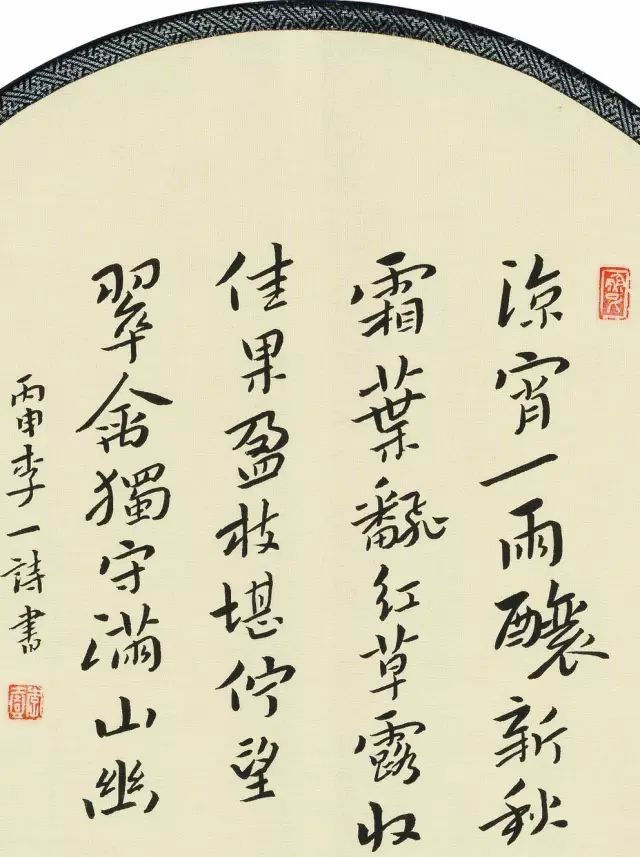 涼宵一雨釀新秋
霜葉飜紅草露收
佳果盈枝堪佇望
翠禽獨守滿山幽
丙申李一詩書